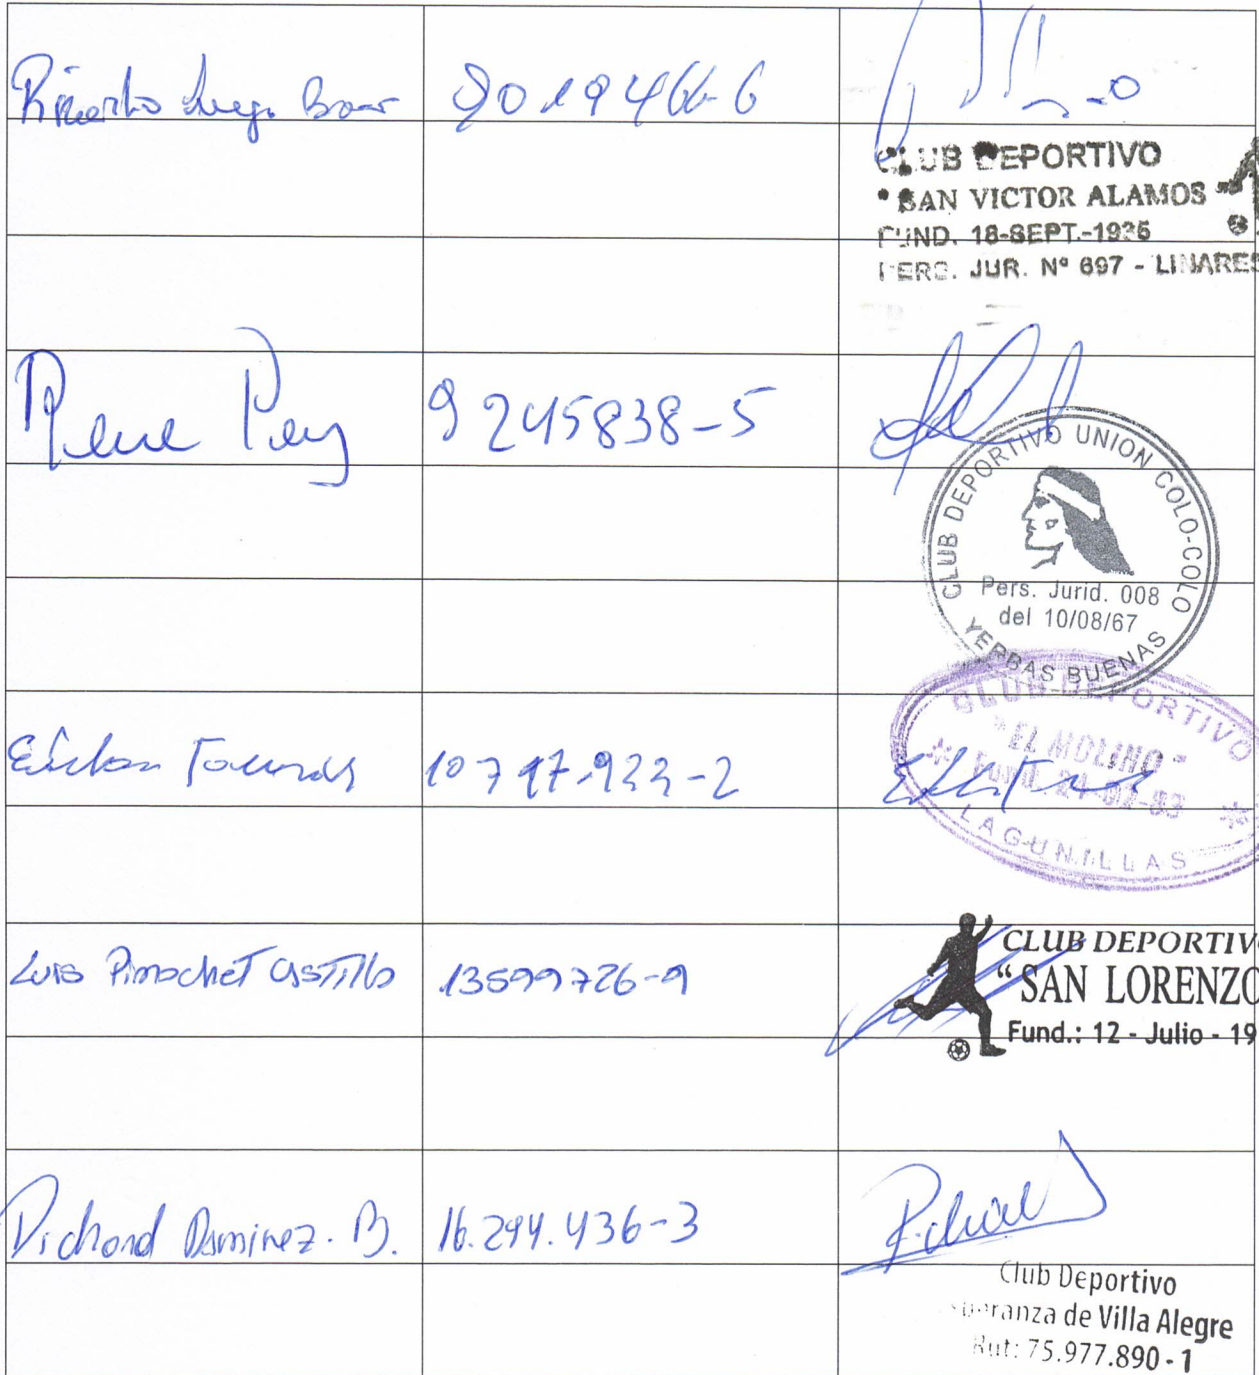 Ricardo 8019466-6
CLUB DEPORTIVO
SAN VICTOR ALAMOS
FUND. 18-SEPT.-1935
PERS. JUR. Nº 697 - LINARES
Rene 9245838-5
CLUB DEPORTIVO UNION COLO-COLO
Pers. Jurid. 008
del 10/08/67
YERBAS BUENAS
CLUB DEPORTIVO
"EL MOLINO"
LAGUNILLAS
10797.922-2
Luis Pinochet Castillo 13599726-9
CLUB DEPORTIV
"SAN LORENZO
Fund.: 12 - Julio - 19
Richard Ramirez. B. 16.294.436-3
Club Deportivo
peranza de Villa Alegre
Rut: 75.977.890-1